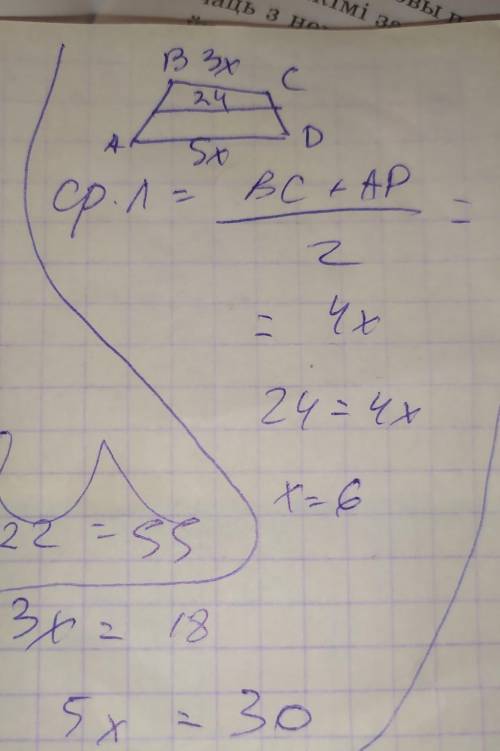 чаць з
B 3x C
24
A 5x D
ср. л = BC + AD / 2 =
= 4x
24 = 4x
x = 6
22 = 55
3x = 18
5x = 30